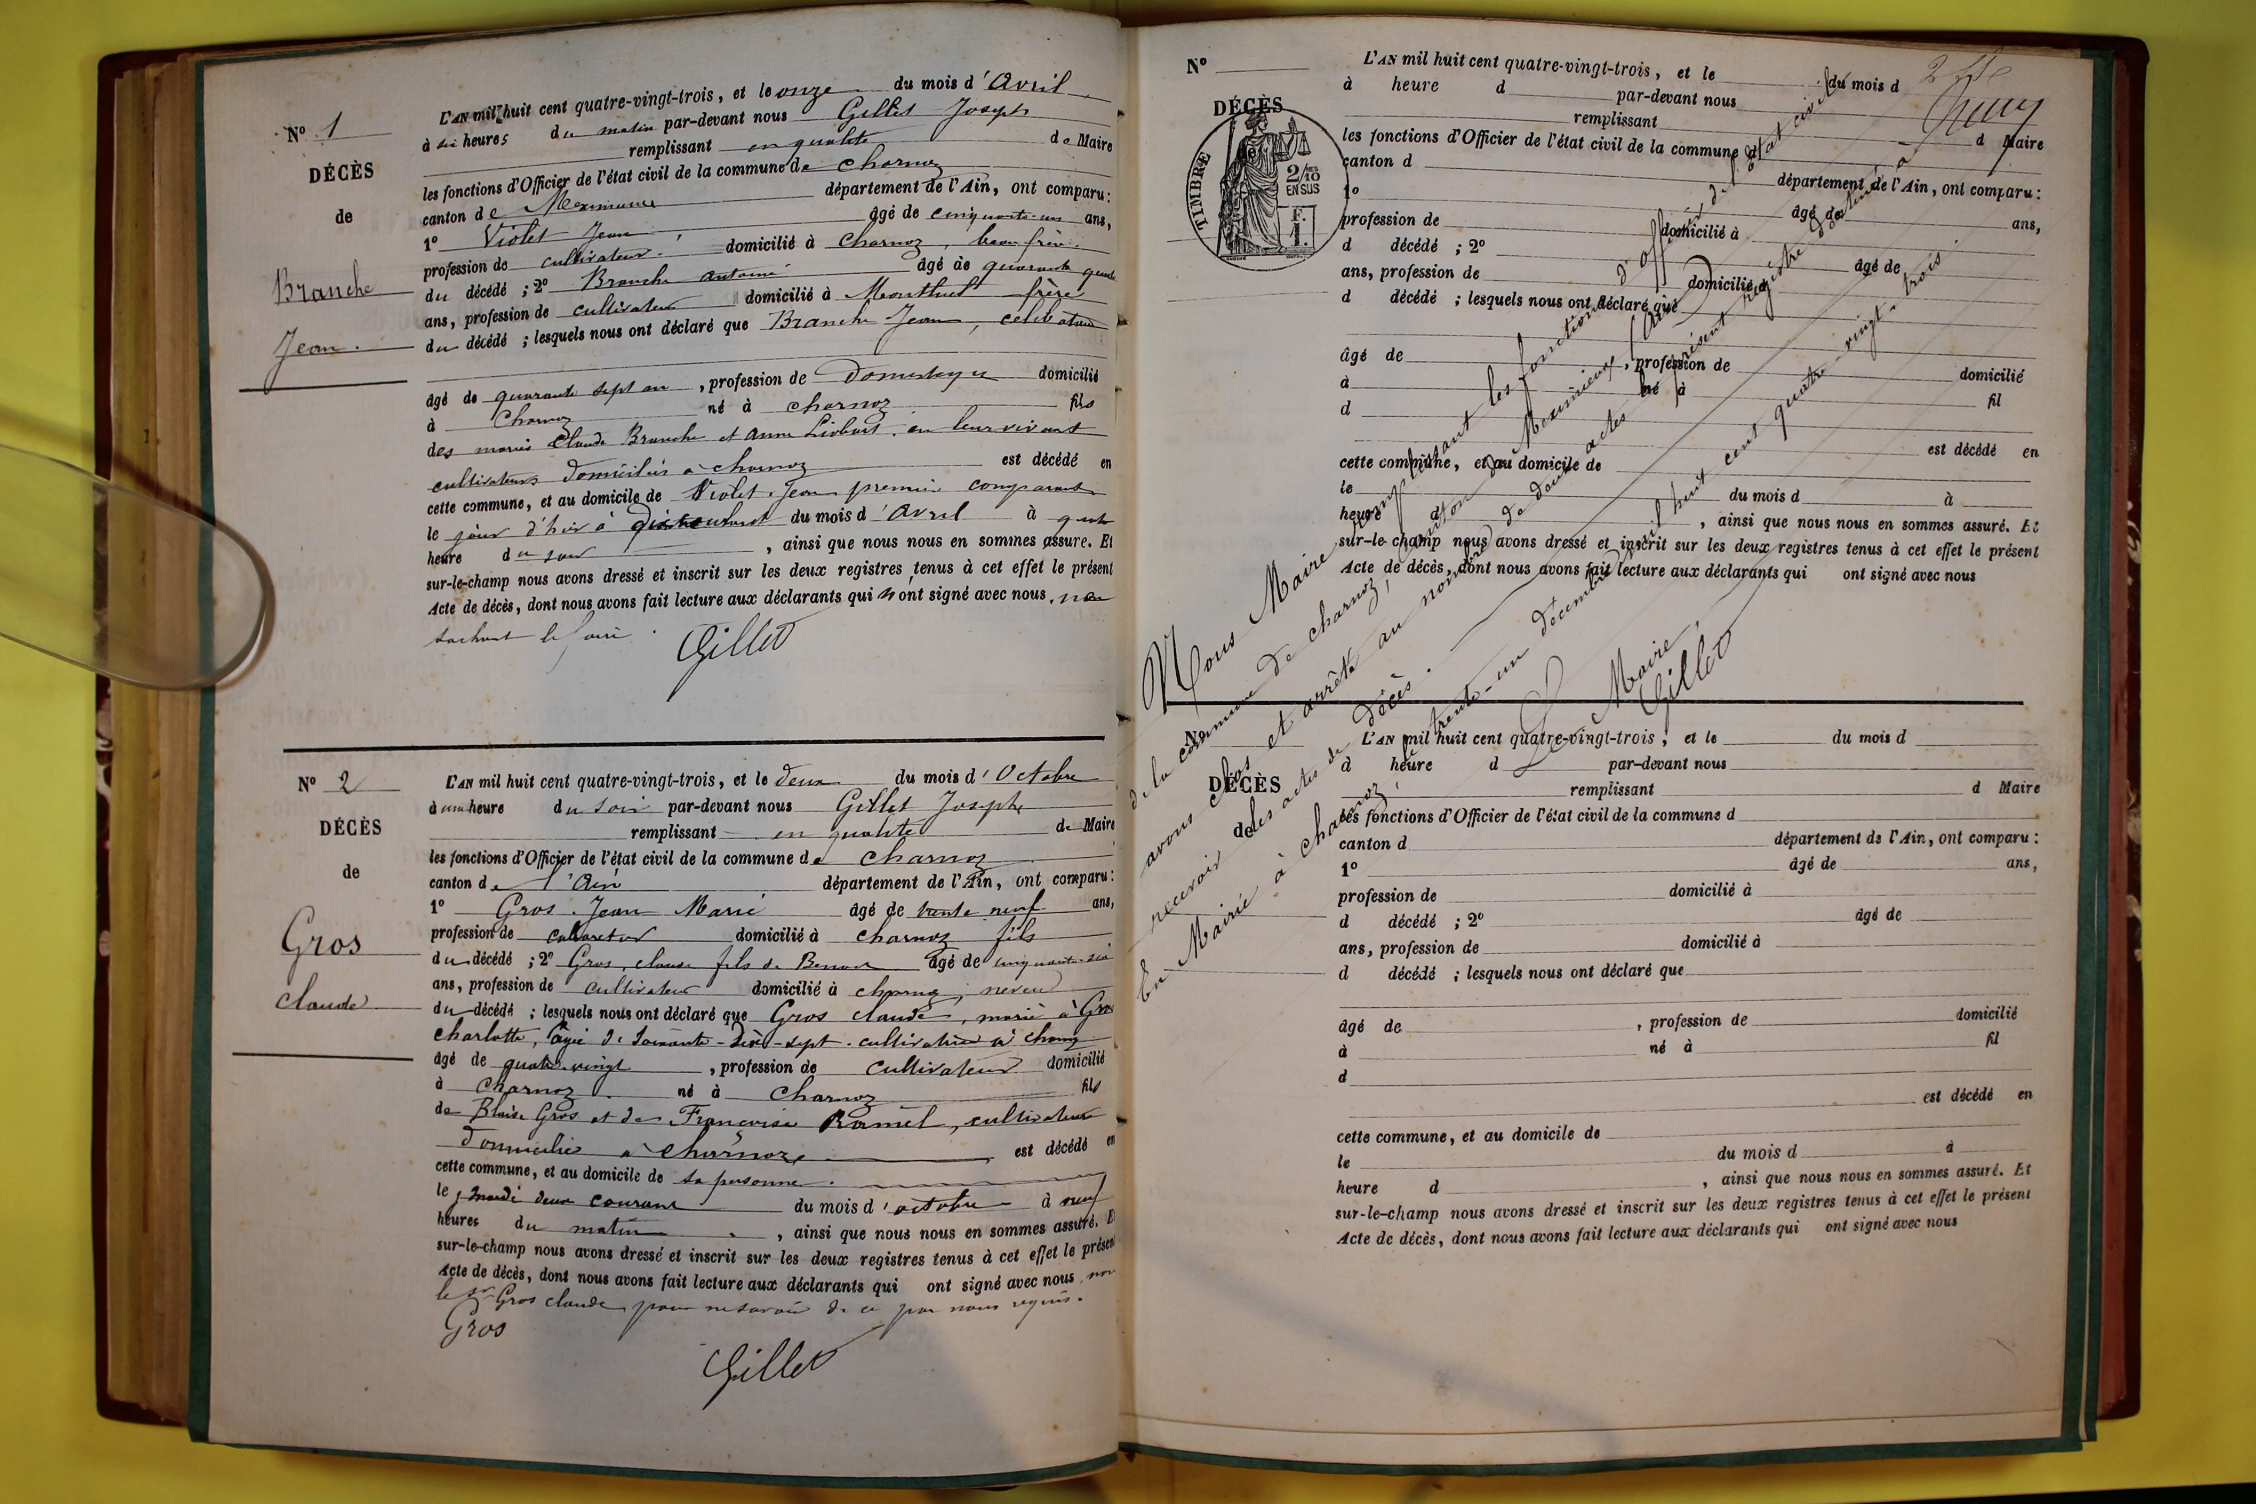 N° 1
DÉCÈS
de
Branche
Jean.
L'AN mil huit cent quatre-vingt-trois, et le onze du mois d'Avril
à six heures du matin par-devant nous Gillet Joseph
remplissant en qualité de Maire
les fonctions d'Officier de l'état civil de la commune de Charnoz
canton de Meximieux département de l'Ain, ont comparu:
1° Violet Jean âgé de cinquante-un ans,
profession de cultivateur domicilié à Charnoz, beau frère
du décédé; 2° Branche antoine âgé de quarante quatre
ans, profession de cultivateur domicilié à Montluel frère
du décédé; lesquels nous ont déclaré que Branche Jean, célibataire
âgé de quarante sept an, profession de Domestique domicilié
à Charnoz né à Charnoz fils
des mariés Claude Branche et Anne en leur vivant
cultivateurs domiciliés à Charnoz est décédé en
cette commune, et au domicile de Violet Jean premier comparant
le jour d'hier à du mois d'Avril à
heure du soir, ainsi que nous nous en sommes assuré. Et
sur-le-champ nous avons dressé et inscrit sur les deux registres tenus à cet effet le présent
Acte de décès, dont nous avons fait lecture aux déclarants qui n'ont signé avec nous, ne
sachant le faire.
Gillet
N° 2
DÉCÈS
de
Gros
Claude
L'AN mil huit cent quatre-vingt-trois, et le deux du mois d'Octobre
à une heure du soir par-devant nous Gillet Joseph
remplissant en qualité de Maire
les fonctions d'Officier de l'état civil de la commune de Charnoz
canton de l'Ain département de l'Ain, ont comparu:
1° Gros Jean Marie âgé de trente neuf ans,
profession de domicilié à charnoz fils
du décédé; 2° Gros, claude fils de Benoit âgé de cinquante-six
ans, profession de cultivateur domicilié à charnoz, neveu
du décédé; lesquels nous ont déclaré que Gros claude, marié à Gros
Charlotte, âgée de soixante-dix-sept. cultivatrice à charnoz
âgé de quatre-vingt, profession de cultivateur domicilié
à Charnoz né à Charnoz fils
de Blaise Gros et de Françoise Ramel, cultivateurs
domiciliés à Charnoz, est décédé en
cette commune, et au domicile de sa personne.
le mardi deux courant du mois d'octobre à neuf
heures du matin, ainsi que nous nous en sommes assuré. Et
sur-le-champ nous avons dressé et inscrit sur les deux registres tenus à cet effet le présent
Acte de décès, dont nous avons fait lecture aux déclarants qui ont signé avec nous, non
le sr Gros claude pour ne savoir de ce par nous requis.
Gros
Gillet
N°
DÉCÈS
TIMBRE
2/10 EN SUS
F. 1.
L'AN mil huit cent quatre-vingt-trois, et le du mois d
à heure d par-devant nous
remplissant d Maire
les fonctions d'Officier de l'état civil de la commune d
canton d département de l'Ain, ont comparu:
1° âgé de ans,
profession de domicilié à
d décédé; 2° âgé de
ans, profession de domicilié à
d décédé; lesquels nous ont déclaré que
âgé de, profession de domicilié
à né à fil
d
est décédé en
cette commune, et au domicile de
le du mois d à
heure d, ainsi que nous nous en sommes assuré. Et
sur-le-champ nous avons dressé et inscrit sur les deux registres tenus à cet effet le présent
Acte de décès, dont nous avons fait lecture aux déclarants qui ont signé avec nous
Nous Maire remplissant les fonctions d'officier de l'état civil
de la commune de charnoz, canton de Meximieux (Ain)
avons clos et arrêté au nombre de deux actes le présent registre destiné à
recevoir les actes de décès.
En Mairie à charnoz, le trente-un décembre mil huit cent quatre-vingt-trois
Le Maire,
Gillet
N°
DÉCÈS
de
L'AN mil huit cent quatre-vingt-trois, et le du mois d
à heure d par-devant nous
remplissant d Maire
les fonctions d'Officier de l'état civil de la commune d
canton d département de l'Ain, ont comparu:
1° âgé de ans,
profession de domicilié à
d décédé; 2° âgé de
ans, profession de domicilié à
d décédé; lesquels nous ont déclaré que
âgé de, profession de domicilié
à né à fil
d
est décédé en
cette commune, et au domicile de
le du mois d à
heure d, ainsi que nous nous en sommes assuré. Et
sur-le-champ nous avons dressé et inscrit sur les deux registres tenus à cet effet le présent
Acte de décès, dont nous avons fait lecture aux déclarants qui ont signé avec nous